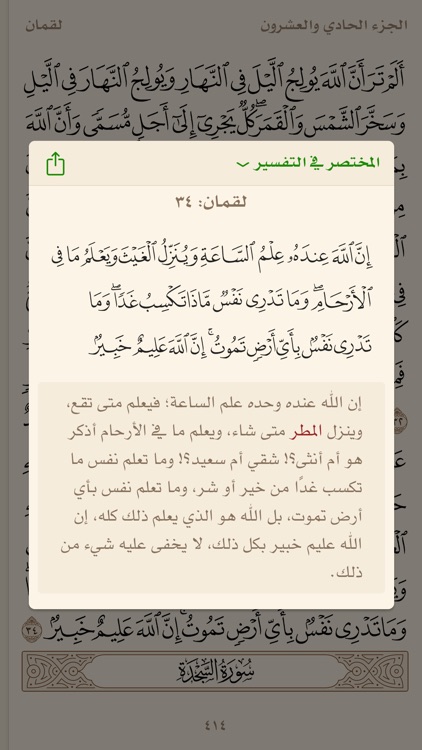 الجزء الحادي والعشرون
لقمان
أَلَمْ تَرَ أَنَّ ٱللَّهَ يُولِجُ ٱلَّيْلَ فِى ٱلنَّهَارِ وَيُولِجُ ٱلنَّهَارَ فِى ٱلَّيْلِ
وَسَخَّرَ ٱلشَّمْسَ وَٱلْقَمَرَ كُلٌّ يَجْرِىٓ إِلَىٰٓ أَجَلٍ مُّسَمًّى وَأَنَّ ٱللَّهَ
المختصر في التفسير
لقمان: ٣٤
إِنَّ ٱللَّهَ عِندَهُۥ عِلْمُ ٱلسَّاعَةِ وَيُنَزِّلُ ٱلْغَيْثَ وَيَعْلَمُ مَا فِى
ٱلْأَرْحَامِۖ وَمَا تَدْرِى نَفْسٌ مَّاذَا تَكْسِبُ غَدًاۖ وَمَا
تَدْرِى نَفْسٌۢ بِأَىِّ أَرْضٍ تَمُوتُۚ إِنَّ ٱللَّهَ عَلِيمٌ خَبِيرٌۢ
إن الله عنده وحده علم الساعة؛ فيعلم متى تقع،
وينزل المطر متى شاء، ويعلم ما في الأرحام أذكر
هو أم أنثى؟! شقي أم سعيد؟! وما تعلم نفس ما
تكسب غدًا من خير أو شر، وما تعلم نفس بأي
أرض تموت، بل الله هو الذي يعلم ذلك كله، إن
الله عليم خبير بكل ذلك، لا يخفى عليه شيء من
ذلك.
وَمَا تَدْرِى نَفْسٌۢ بِأَىِّ أَرْضٍ تَمُوتُۚ إِنَّ ٱللَّهَ عَلِيمٌ خَبِيرٌۢ ٣٤
سُورَةُ السَّجْدَةِ
٤١٤